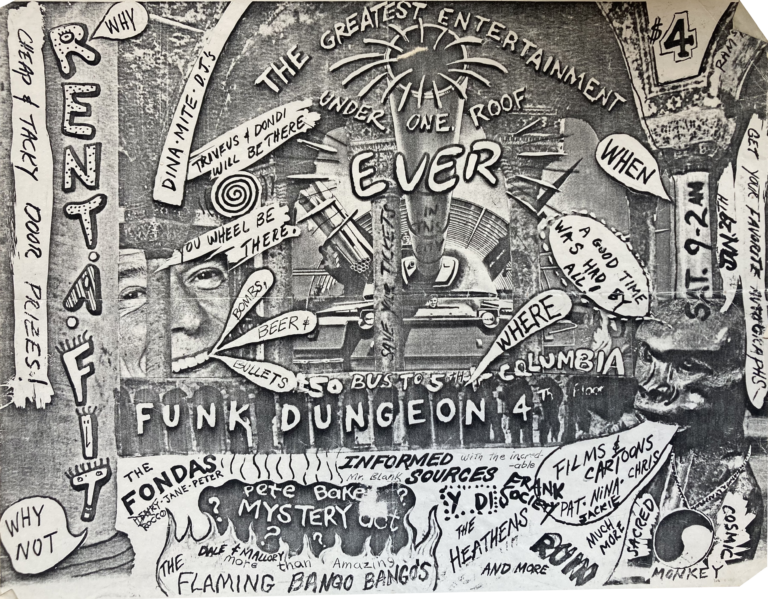 WHY
RENT.A.FIT
CHEAP & TACKY DOOR PRIZES!
WHY NOT
DINA MITE. D.J.'s
THE GREATEST ENTERTAINMENT
UNDER ONE ROOF
EVER
TRIVEUS & DONDI
WILL BE THERE
YOU WHEEL BE
THERE.
BOMBS,
BEER &
BULLETS
$4
WHEN
SAT. 9-2 AM
GET YOUR FAVORITE AUTOGRAPHS
A GOOD TIME
WAS HAD BY
ALL!
WHERE
50 BUS TO 5TH & COLUMBIA
FUNK DUNGEON 4TH floor
THE
FONDAS
HENRY-JANE-PETER
ROCCO
INFORMED
SOURCES
with the incred-
-able
Mr. Blank
Pete Bake
MYSTERY act
? ? ? ?
DALE & MALLORY
more than Amazing
THE
FLAMING BANGO BANGO'S
Y DI
FRANK
SOCIETY
THE
HEATHENS
AND MORE
FILMS &
CARTOONS
PAT. NINA. CHRIS
JACKIE
MUCH
MORE
SACRED
COSMIC
MONKEY